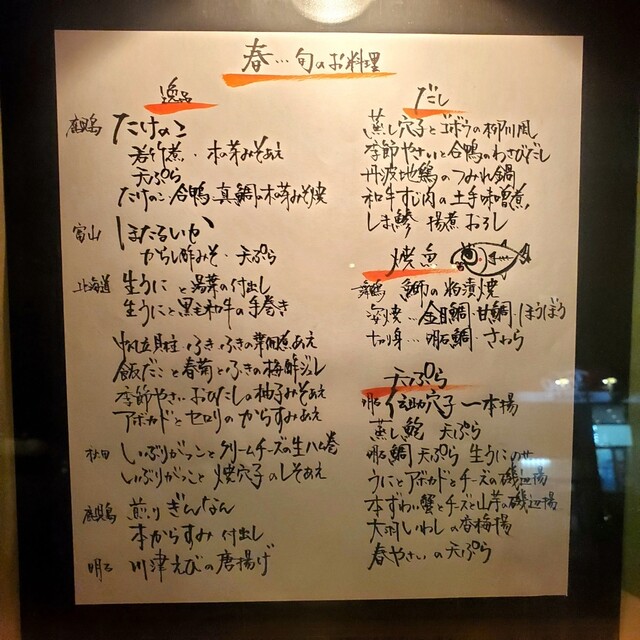 春…旬のお料理
逸品
鹿児島 たけのこ
若竹煮・木の芽みそあえ
天ぷら
たけのこ・合鴨・真鯛の木の芽みそ焼
富山 ほたるいか
からし酢みそ・天ぷら
北海道 生うにと湯葉の付出し
生うにと黒毛和牛の手巻き
帆立貝柱・いき・ふきの葉佃煮あえ
飯だこと春菊とふきの梅酢ジレ
季節やさいおひたしの柚子みぞあえ
アボカドとセロリのからすみあえ
秋田 いぶりがっことクリームチーズの生ハム巻
いぶりがっこと焼穴子のしそあえ
鹿児島 煎りぎんなん
本からすみ 付出し
明石 川津えびの唐揚げ
だし
蒸し穴子とゴボウの柳川風
季節やさいと合鴨のわさびだし
丹波地鶏のつみれ鍋
和牛すじ肉の土手味噌煮
しま鯵 揚煮おろし
焼魚
舞鶴 鰤の粕漬焼
姿焼…金目鯛・甘鯛・ほうぼう
切り身…明石鯛・さわら
天ぷら
明石 伝助穴子一本揚
蒸し鮑 天ぷら
明石鯛 天ぷら 生うにのせ
うにとアボカドとチーズの磯辺揚
本ずわい蟹とチーズと山芋の磯辺揚
大羽いわしの香梅揚
春やさいの天ぷら